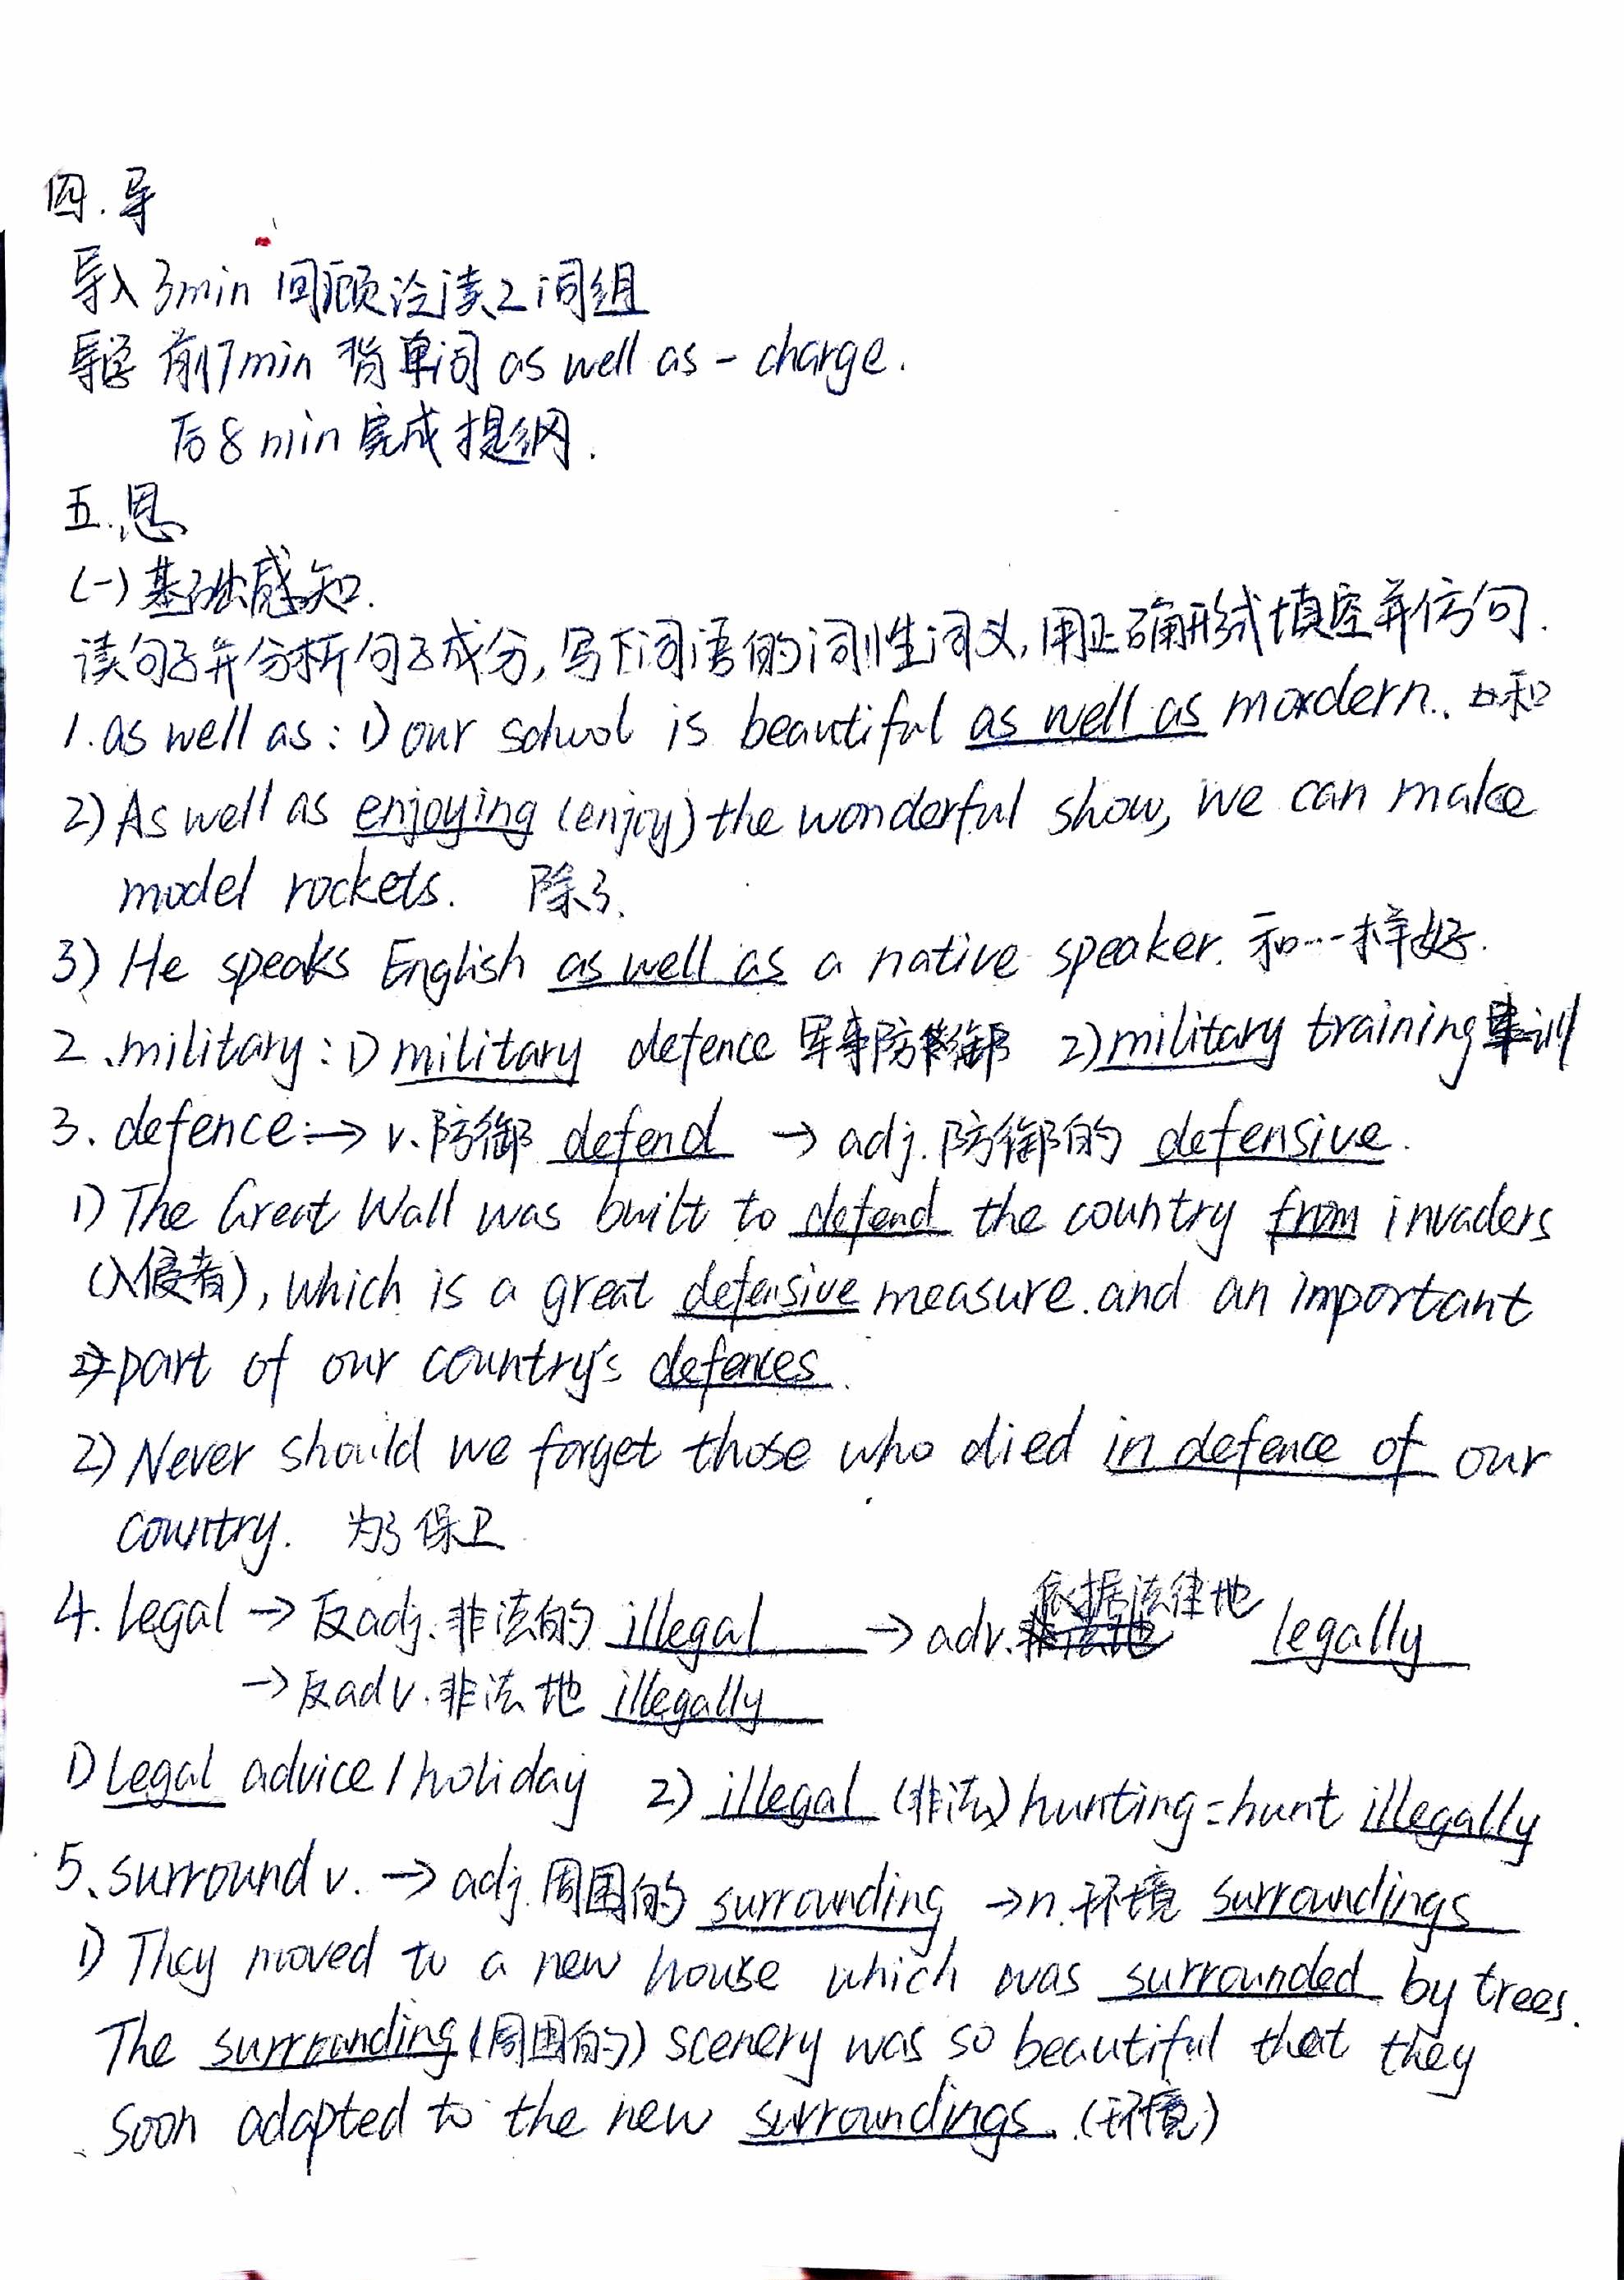 四.导
导入3min 回顾泛读2词组
导学 前7min 背单词 as well as - charge.
后8min 完成提纲.
五.思
(一)基础感知.
读句子并分析句子成分,写下词语的词性词义,用正确形式填空并仿句.
1. as well as: 1) our school is beautiful as well as mordern. 和
2) As well as enjoying (enjoy) the wonderful show, we can make
model rockets. 除了.
3) He speaks English as well as a native speaker. 和…一样好.
2、military: 1) military defence 军事防御 2) military training 军训
3、defence: → v.防御 defend → adj.防御的 defensive.
1) The Great Wall was built to defend the country from invaders
(入侵者), which is a great defensive measure. and an important
part of our country's defences.
2) Never should we forget those who died in defence of our
country. 为了保卫
4. legal → 反adj. 非法的 illegal → adv. 依据法律地 legally
→ 反adv. 非法地 illegally
1) Legal advice / holiday 2) illegal (非法) hunting = hunt illegally
5、surround v. → adj. 周围的 surrounding → n. 环境 surroundings
1) They moved to a new house which was surrounded by trees.
The surrounding (周围的) scenery was so beautiful that they
soon adapted to the new surroundings. (环境)